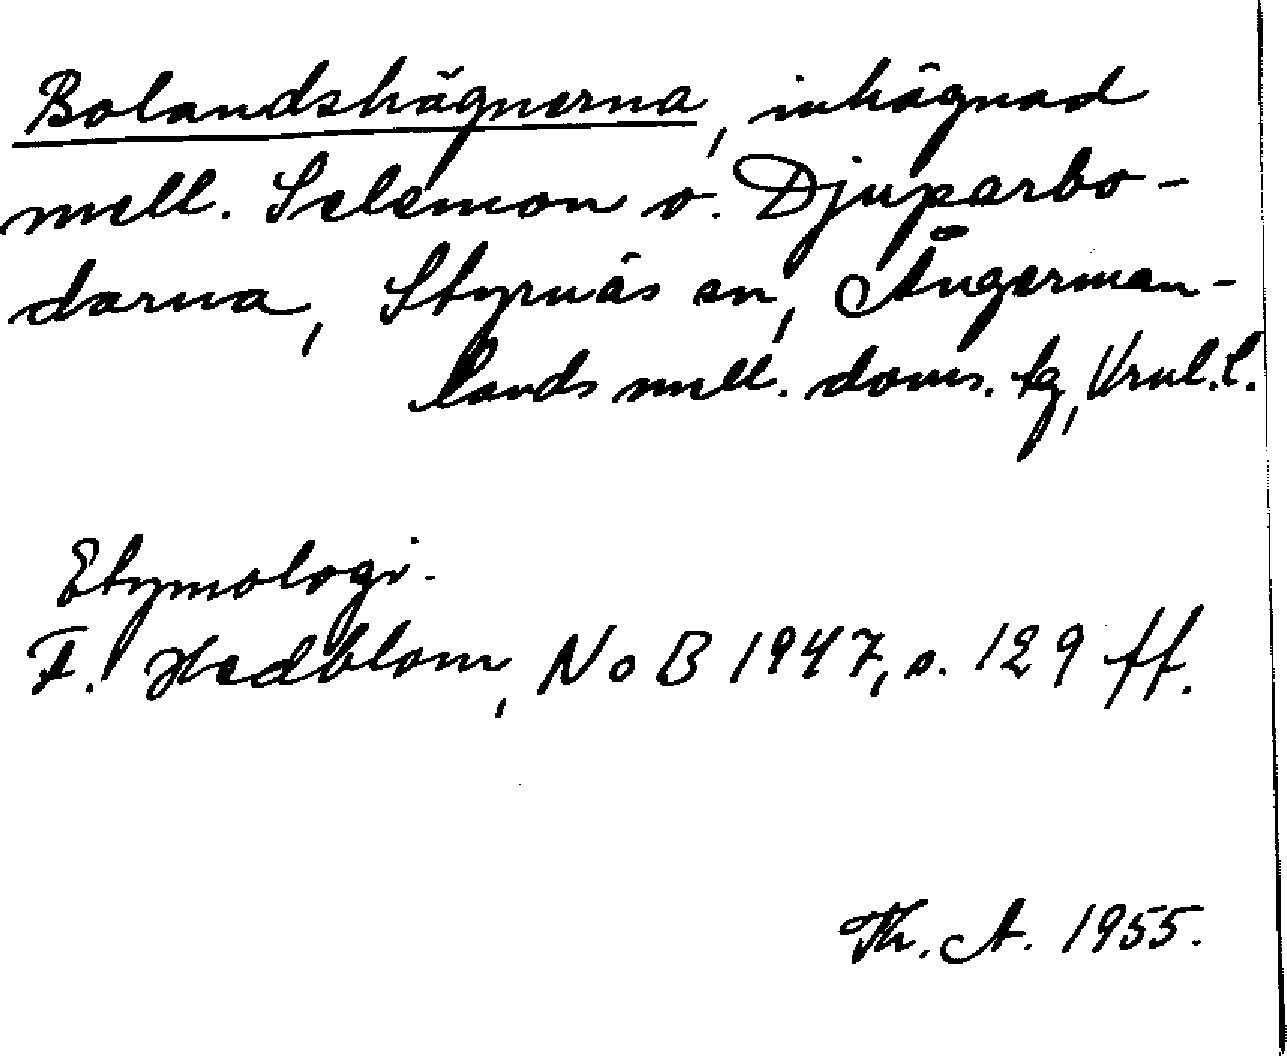 Bolandshägnerna, inhägnad
mell. Selemon o. Djuparbo-
darna, Styrnäs sn, Ångerman-
lands mell. doms. tg, Vrnl. l.
Etymologi.
F. Hedblom, NoB 1947, s. 129 ff.
Th. A. 1955.